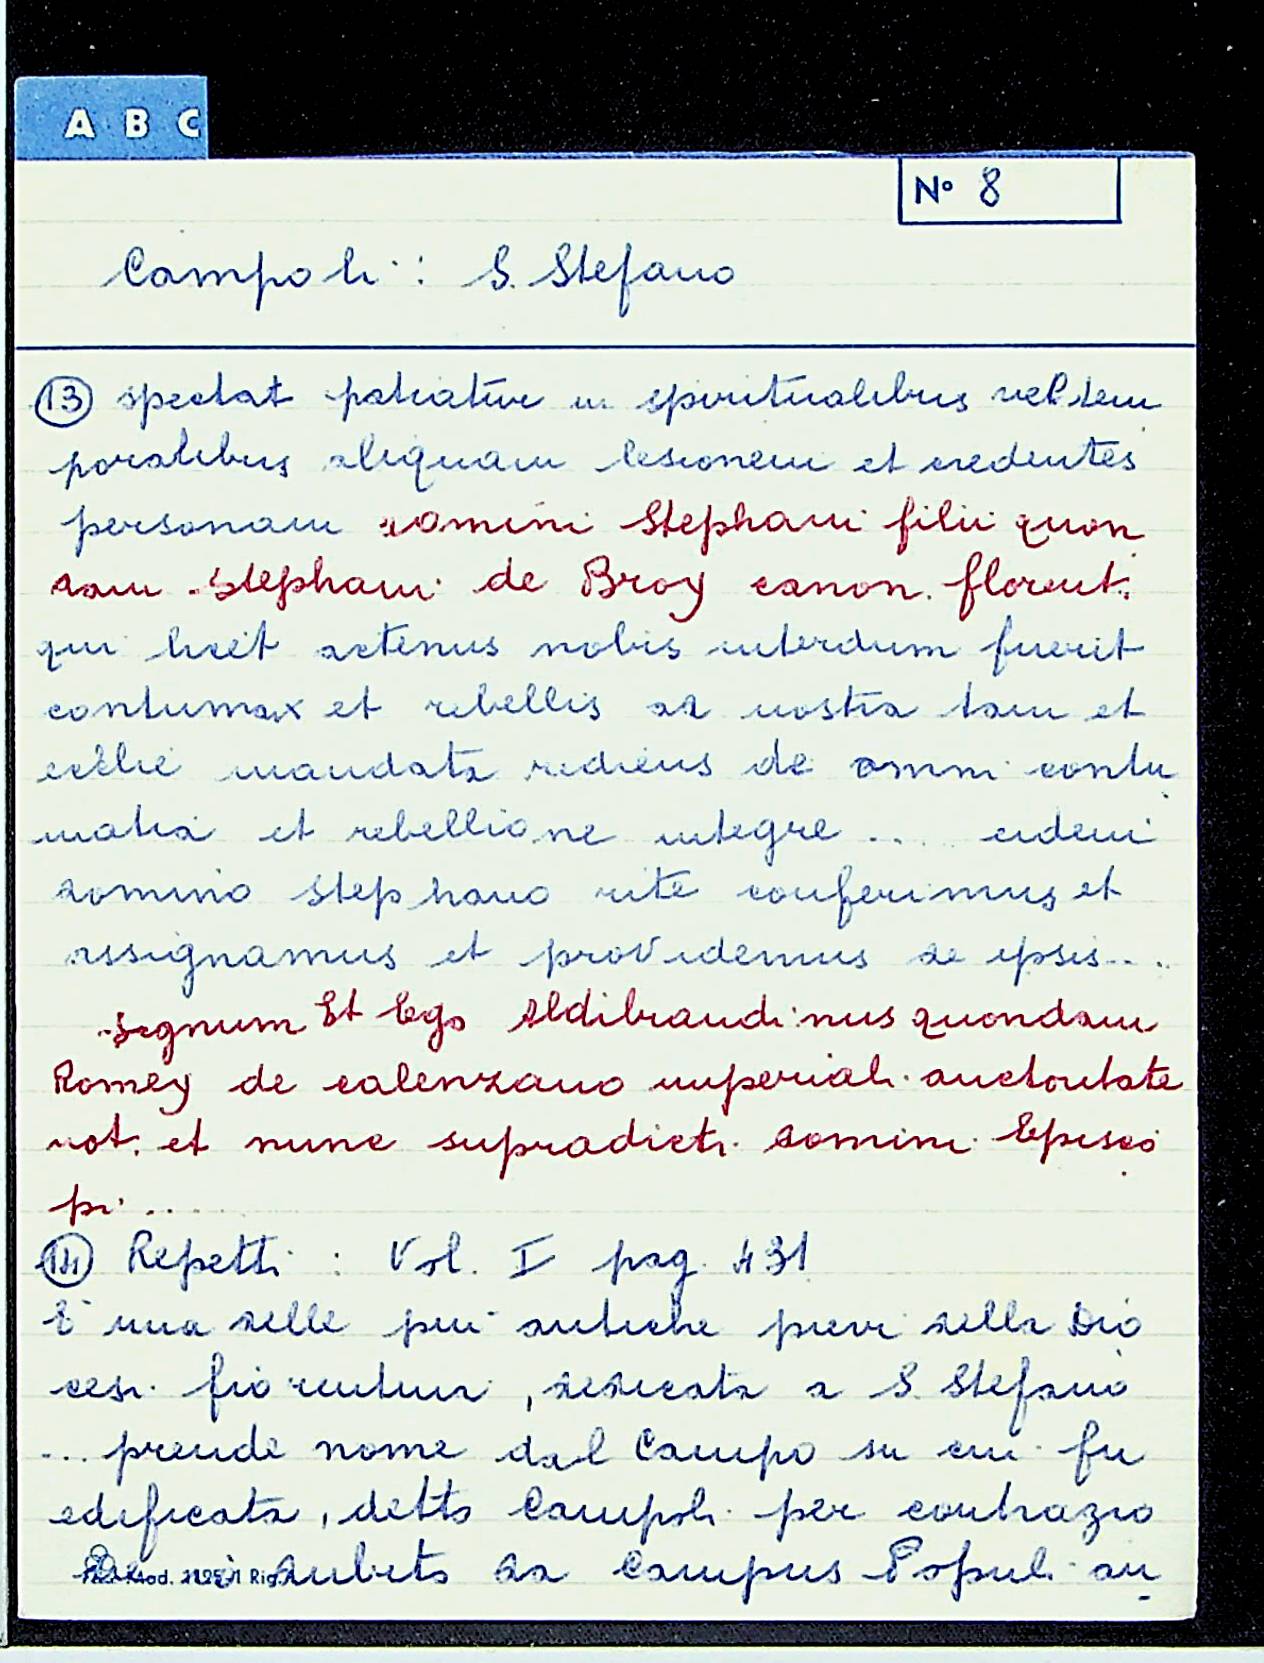 A B C
N° 8
Campoli: S. Stefano
13 spectat patiatur in spiritualibus vel tem
poralibus aliquam lesionem et credentes
personam domini Stephani filii quon
dam Stephani de Broy canon. florent.
qui licet actenus nobis interdum fuerit
contumax et rebellis ad nostra tam et
mandata rediens de omni contu
matia et rebellione integre .... eidem
domino Stephano rite conferimus et
assignamus et providemus de ipsis....
Signum Et Ego Aldibrandinus quondam
Romey de calenzano imperiali auctoritate
not. et nunc supradicti domini Episco
pi .....
14 Repetti : Vol. I pag. 431
È una delle più antiche pievi della Dio
cesi fiorentina, dedicata a S. Stefano
... prende nome dal Campo su cui fu
edificata, detto Campoli per contrazio
subito da Campus Populi an